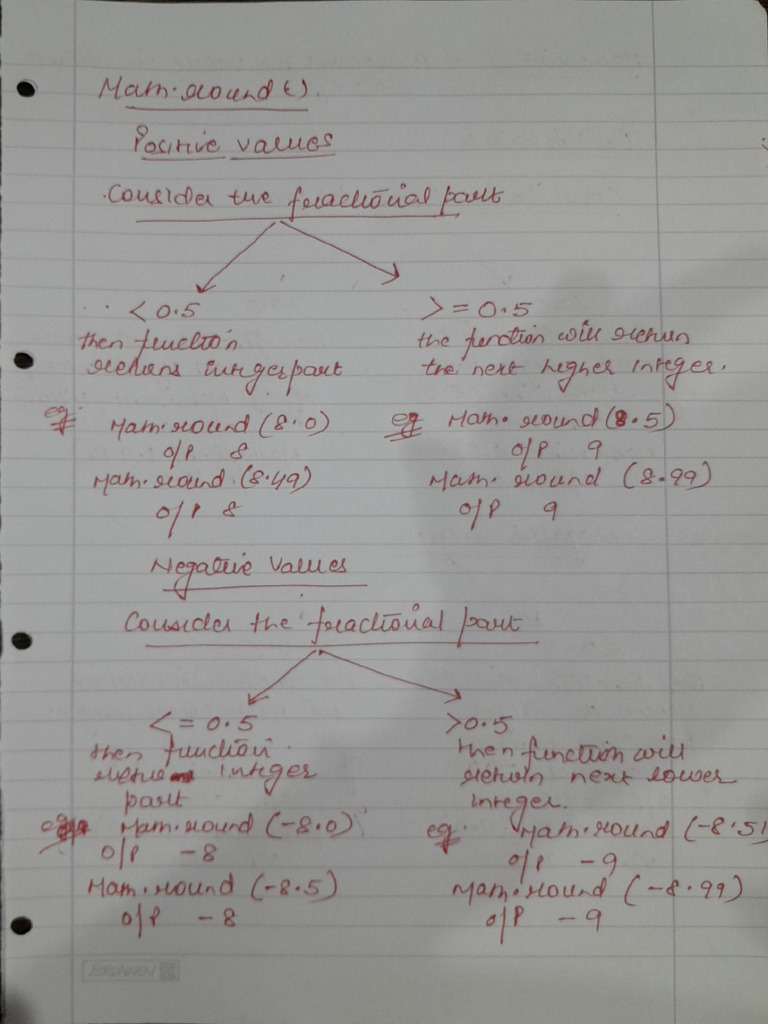 Math.round().
Positive values
Consider the fractional part
< 0.5
then function
returns integer part
eg: Math.round (8.0)
o/p 8
Math.round (8.49)
o/p 8
>= 0.5
the function will return
the next higher integer.
eg Math.round (8.5)
o/p 9
Math.round (8.99)
o/p 9
Negative values
Consider the fractional part
<= 0.5
then function
return integer
part
eg Math.round (-8.0)
o/p -8
Math.round (-8.5)
o/p -8
>0.5
then function will
return next lower
integer.
eg. Math.round (-8.51
o/p -9
Math.round (-8.99)
o/p -9
BRUNNEN